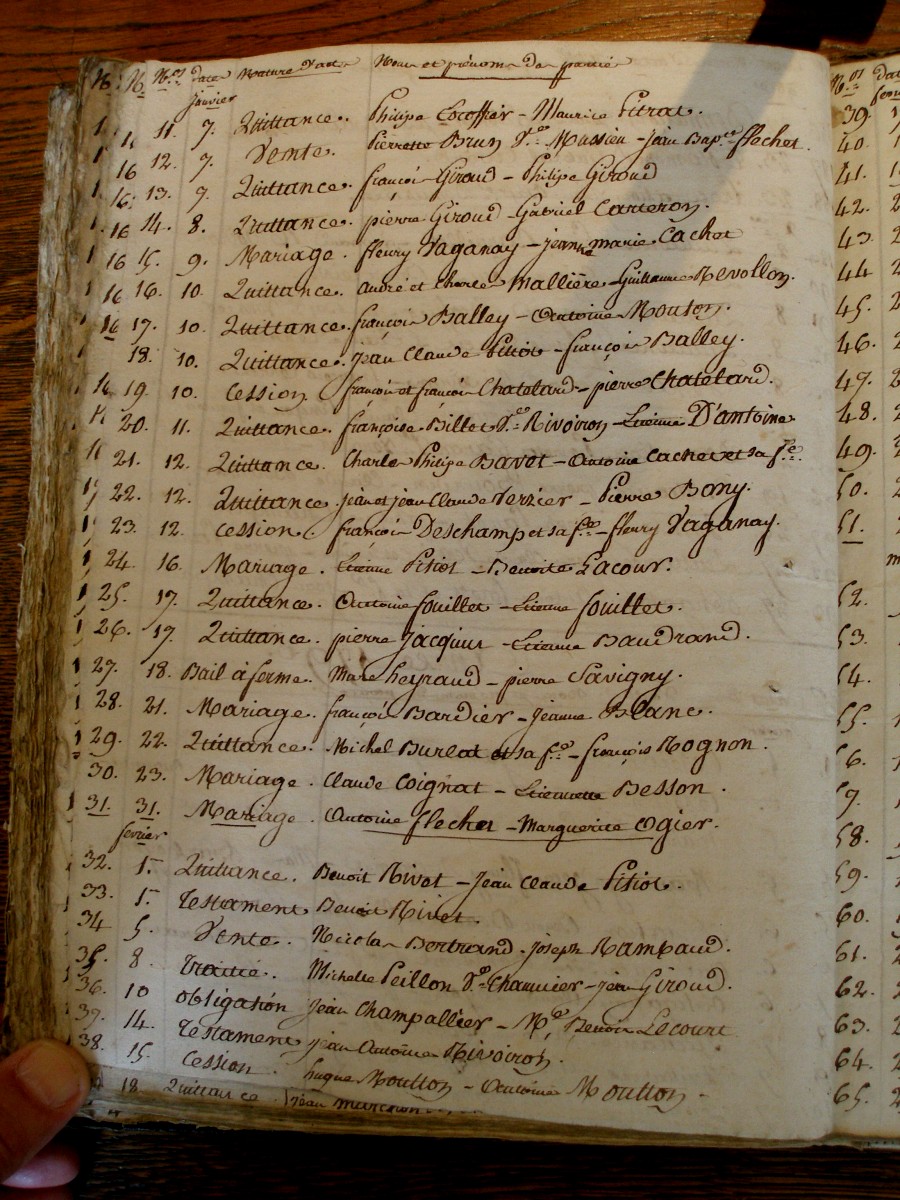 N.os date Nature d'actes Noms et prénoms des parties
Janvier
11. 7. Quittance. Philipe Escoffier - Maurice Pitrat.
12. 7. Vente. Pierrette Brun V.e Mussieu - jean Bap.te flechet.
16 13. 7. Quittance. françois Giroud - Philipe Giroud
16 14. 8. Quittance. pierre Giroud - Gabriel Carteron.
16 15. 9. Mariage. fleury Vaganay - jeanne marie Cachet
16 16. 10. Quittance. André et Mallière - Guillaume Revollon.
16 17. 10. Quittance. françois Balley - Antoine Mouton.
18. 10. Quittance. jean Claude Pitiot - françois Balley.
19. 10. Cession françois et françois Chatelard - pierre Chatelard.
20. 11. Quittance. françoise Billet V.e Rivoiron - Etienne D'antoine
21. 12. Quittance. Charles Philipe Bavot - Antoine Cachet et sa f.e
22. 12. Quittance. jean et jean Claude Verzier - Pierre Bony.
23. 12. Cession. françois Deschamp et sa f.e - fleury Vaganay.
24. 16. Mariage. Etienne Pitiot - Benoite Lacour.
25. 17. Quittance. Antoine fouillet - Etienne fouillet.
26. 17. Quittance. pierre jacquier - Etienne Baudrand.
27. 18. Bail à ferme. Marc heyraud - pierre Savigny.
28. 21. Mariage. françois Bardier - Jeanne Blanc.
29. 22. Quittance. Michel Burlat et sa f.e - françois Rognon.
30. 23. Mariage. Claude Coignat - Etiennette Besson.
31. 31. Mariage. Antoine flechet - Marguerite Ogier.
fevrier
32. 1. Quittance. Benoit Rivet - Jean Claude Pitiot.
33. 1. Testament Benoit Rivet.
34 5. Vente. Nicolas Bertrand - joseph Rambaud.
35. 8 Traitié. Michelle Peillon V.e Chanvier - jean Giroud.
36. 10 obligation Jean Champallier - M.e Benoit Lecourt
37. 14. Testament jean Antoine Rivoiron.
38. 15. Cession. hugue Moulton - Antoine Moulton.
18. Quittance jean
N.os
39.
40.
41.
42.
43.
44
45.
46.
47.
48.
49.
50.
51.
52.
53.
54.
55.
6.
7.
58.
59.
60.
61.
62.
63.
64.
65.